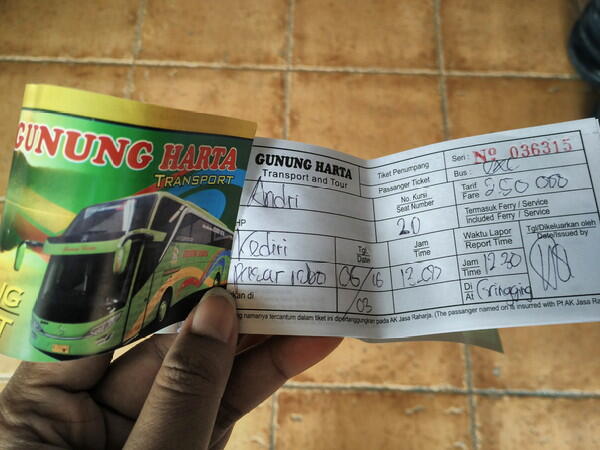 GUNUNG HARTA
TRANSPORT
GUNUNG HARTA
Transport and Tour
Tiket Penumpang
Passenger Ticket
Seri : No 036315
Bus :
Andri
No. Kursi
Seat Number
20
Tarif
Fare
250 000
Termasuk Ferry / Service
Included Ferry / Service
HP
Kediri
Tgl.
Date
06/16
03
Jam
Time
Waktu Lapor
Report Time
Jam
Time
12 30
Di
At
Gringging
Tgl/Dikeluarkan oleh
Date/Issued by
kan di
namanya tercantum dalam tiket ini dipertanggungkan pada AK Jasa Raharja. (The passenger named on is insured with Pt AK Jasa Raharja.)